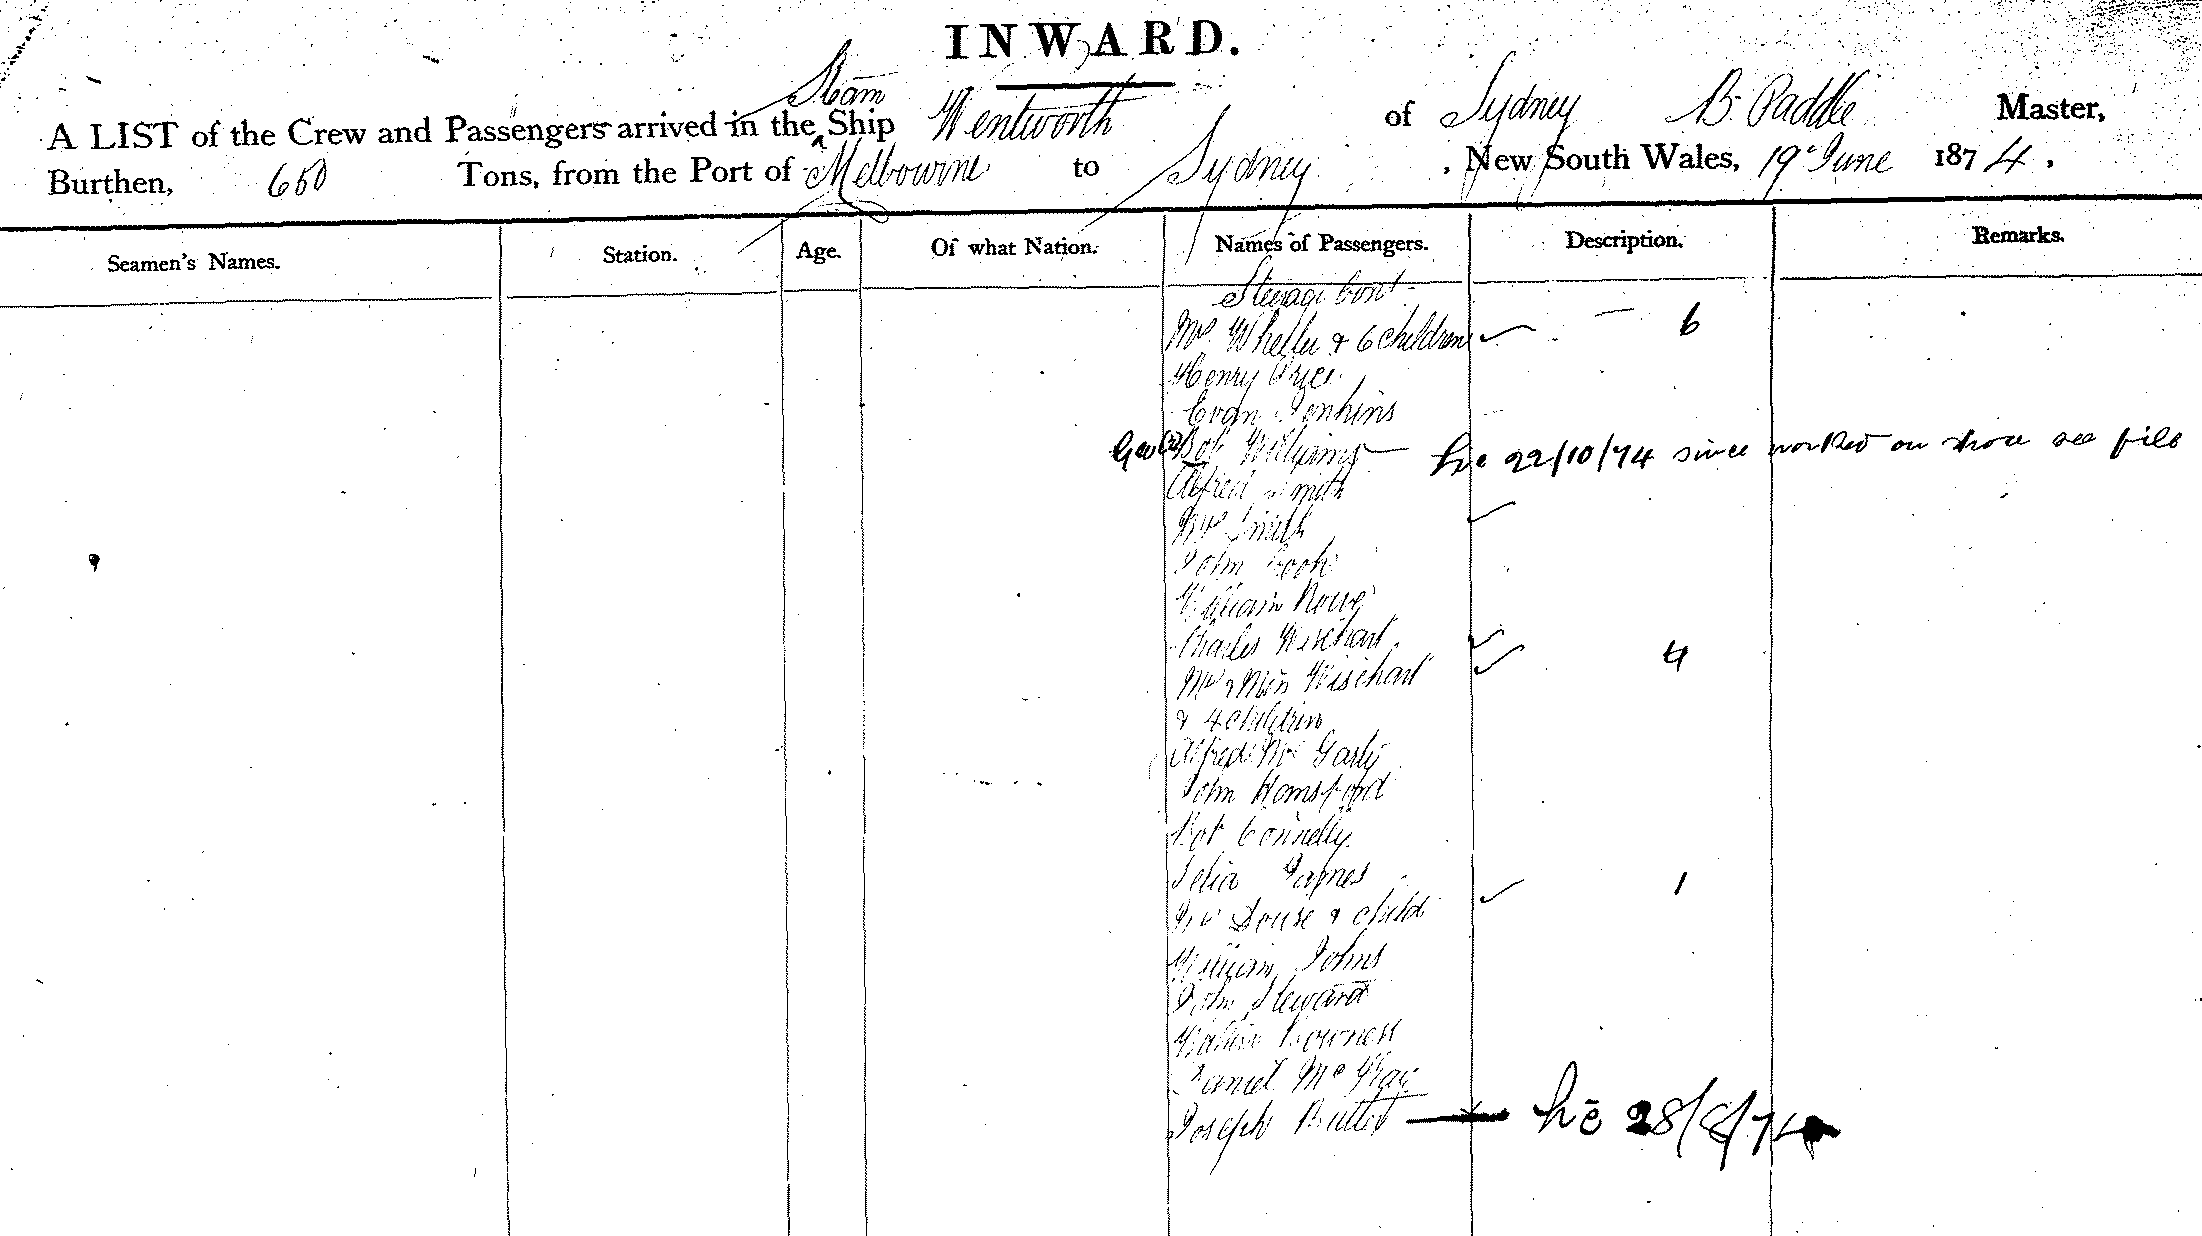 INWARD.
A LIST of the Crew and Passengers arrived in the Steam Ship Wentworth of Sydney B. Paddle Master,
Burthen, 650 Tons, from the Port of Melbourne to Sydney, New South Wales, 19 June 1874.
Seamen's Names. Station. Age. Of what Nation. Names of Passengers. Description. Remarks.
Steerage Cont
Mrs Wheller & 6 children 6
Henry Price
Evan Jenkins
Williams 22/10/74 since on see file
Alfred Smith
Mrs Smith
John Cook
William Rowe
Charles Wisehart
Mrs & Miss Wisehart 4
& 4 children
Alfred Mc
John Hornsford
Robt Connelly
James
Mrs Douse & child 1
William Johns
John Steward
Bowness
Daniel McKay
Joseph Butler 28/8/74